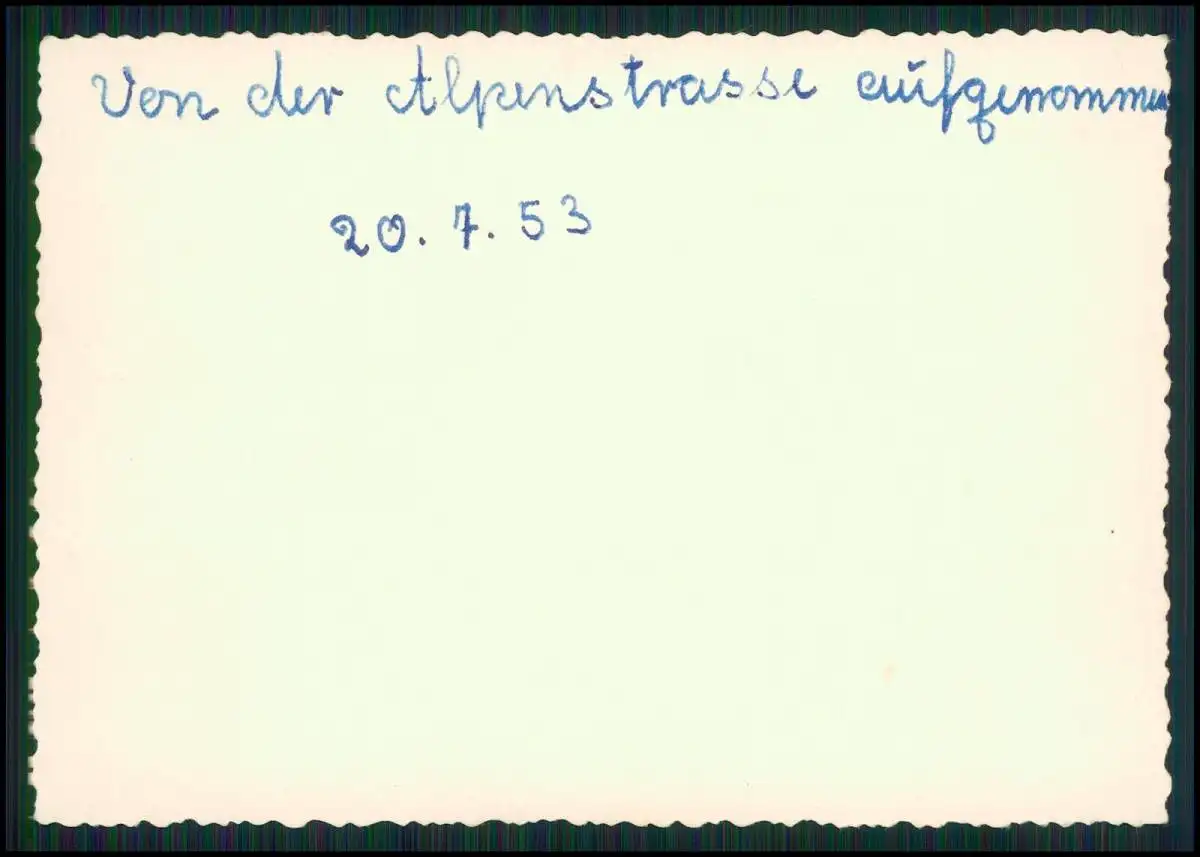 Von der Alpenstrasse aufgenommen
20. 7. 53